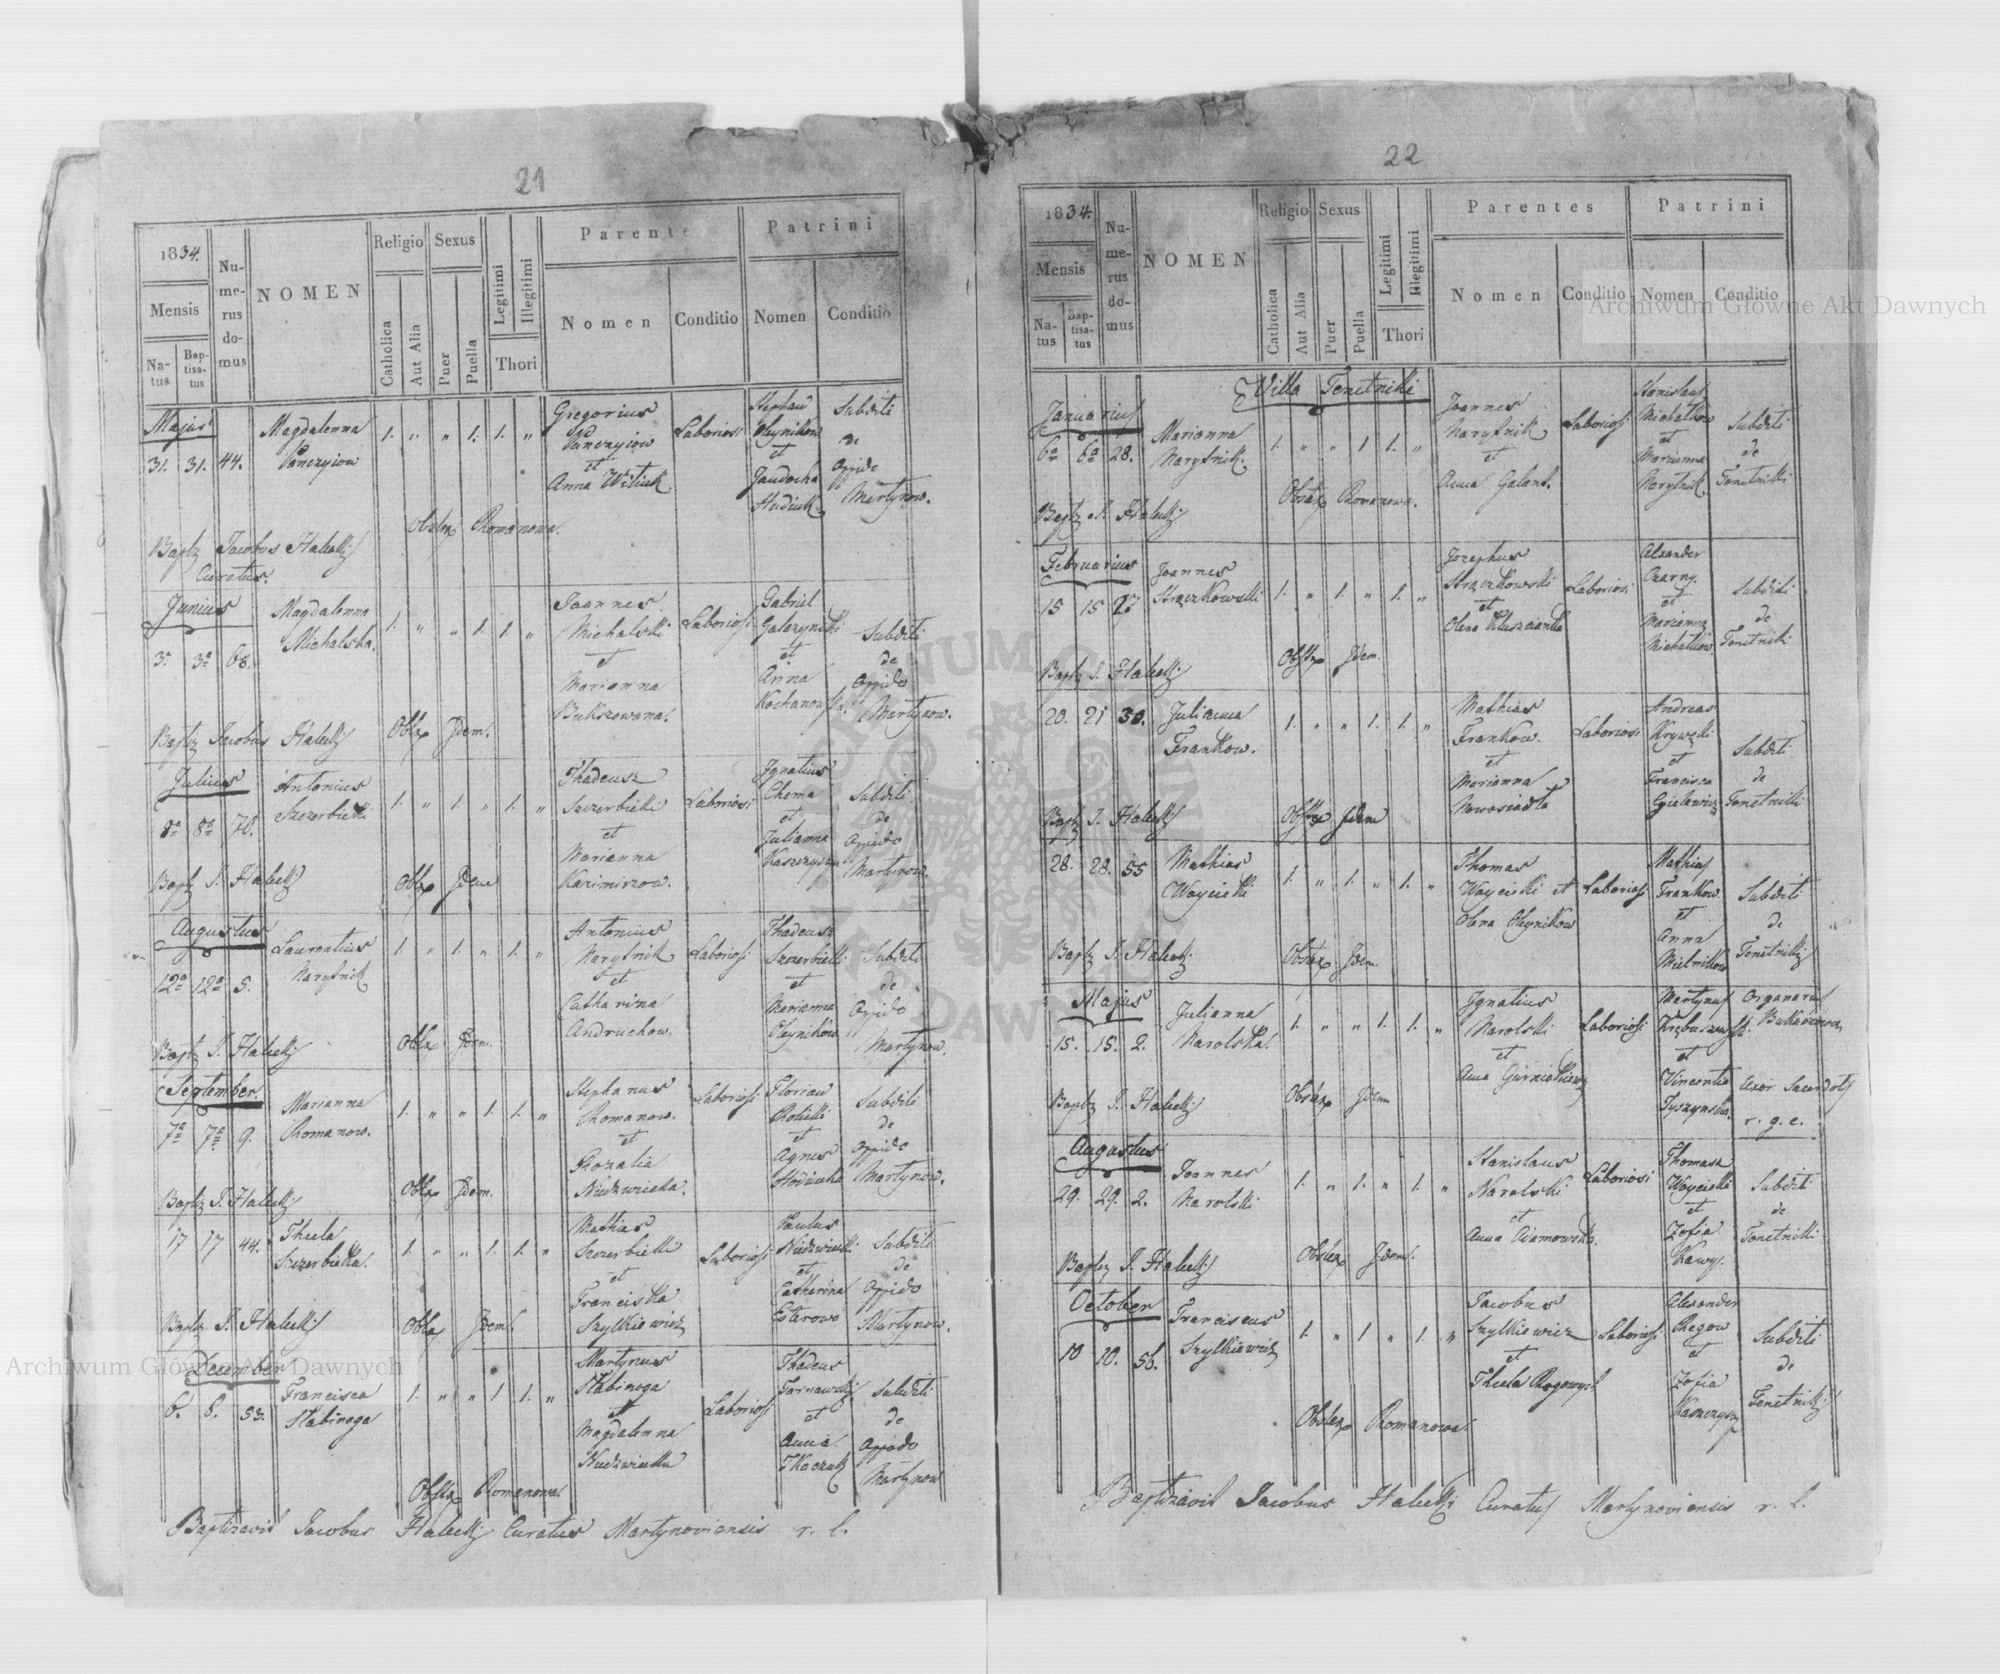 21
1834.
Mensis
Natus
Baptisatus
Numerus domus
NOMEN
Religio
Catholica
Aut Alia
Sexus
Puer
Puella
Legitimi
Illegitimi
Thori
Parente
Nomen
Conditio
Patrini
Nomen
Conditio
Majus
31. 31. 44.
Magdalenna
1. " " 1. 1. "
Gregorius
et
Anna
Laboriosi
Stephan
Oleynikow
et
Subditi
de
Oppido
Martynow.
Obstx Romanowa.
Bapt Jacobus Halecki
Curatus.
Junius
3a 3a 68.
Magdalenna
Michalska.
1. " " 1. 1. "
Joannes
Michalski
et
Marianna
Laboriosi
Gabriel
et
Anna
Subditi
de
Oppido
Martynow.
Bapt Jacobus Halecki Obstx Idem.
Julius
8a 8a 70.
Antonius
Szczerbicki
1. " 1. " 1. "
Thadeusz
Szczerbicki
et
Marianna
Kazimirow.
Laboriosi
Ignatius
Chema
et
Julianna
Subditi
de
Oppido
Martynow.
Bapt J. Halecki Obstx Idem
Augustus
12a 12a 5.
Laurentius
Narytnik
1. " 1. " 1. "
Antonius
Narytnik
et
Catharina
Andruchow.
Laboriosi
Thadeusz
Szczerbicki
et
Marianna
Oleynikow
Subditi
de
Oppido
Martynow.
Bapt J. Halecki Obstx Idem.
September.
7a 7a 9.
Marianna
Romanow.
1. " " 1. 1. "
Stephanus
Romanow.
et
Rozalia
Niedzwiecka.
Laboriosi
Florian
et
Agnes
Subditi
de
Oppido
Martynow.
Bapt J. Halecki Obstx Idem.
17 17 44.
Thecla
Szczerbicka.
1. " " 1. 1. "
Mathias
Szczerbicki
et
Franciska
Szylkiewicz
Laboriosi
Paulus
Niedzwiecki
et
Catharina
Subditi
de
Oppido
Martynow.
Bapt J. Halecki Obstx Idem.
December
6. 6. 53.
Francisca
Stabinoga
1. " " 1 1. "
Martynus
Stabinoga
et
Magdalenna
Niedzwiecka
Laboriosi
Thadeus
Tarnawski
et
Anna
Subditi
de
Oppido
Martynow
Obstx Romanowa.
Baptizavit Jacobus Halecki Curatus Martynoviensis
22
1834.
Mensis
Natus
Baptisatus
Numerus domus
NOMEN
Religio
Catholica
Aut Alia
Sexus
Puer
Puella
Legitimi
Illegitimi
Thori
Parentes
Nomen
Conditio
Patrini
Nomen
Conditio
Archiwum Główne Akt Dawnych
Villa Tenetniki
Januarius
6a 6a 28.
Marianna
Narytnik.
1. " " 1 1. "
Joannes
Narytnik
et
Anna Galant.
Laboriosi
Stanislaus
Michalkow
et
Marianna
Narytnik.
Subditi
de
Tenetniki
Obstx Romanowa.
Bapt J. Halecki
Februarius
15 15 27
Joannes
Strączkowski
1. " 1. " 1. "
Jozephus
Strączkowski
et
Olena
Laboriosi
Alexander
Czarny.
et
Marianna
Michalkow
Subditi
de
Tenetniki
Bapt J. Halecki Obstx Idem.
20. 21 30.
Julianna
Frankow.
1. " " 1. 1. "
Mathias
Frankow.
et
Marianna
Nowosiadla
Laboriosi
Andreas
et
Francisca
Subditi
de
Tenetniki
Bapt J. Halecki Obstx Idem
28. 28. 55
Mathias
Woyciski
1. " 1. " 1. "
Thomas
Woyciski et
Olena Oleynikow
Laboriosi
Mathias
Frankow
et
Anna
Subditi
de
Tenetniki
Bapt J. Halecki Obstx Idem.
Majus
15. 15. 2.
Julianna
Narolska.
1. " " 1. 1. "
Ignatius
Narolski
et
Anna
Laboriosi
Martynus
et
Vincentia
Tyszynska.
Organarius
Uxor Sacerdotis
r. g. c.
Bapt J. Halecki Obstx Idem
Augustus
29. 29. 2.
Joannes
Narolski
1. " 1. " 1. "
Stanislaus
Narolski
et
Anna Adamowska.
Laboriosi
Thomasz
Woyciski
et
Zofia
Subditi
de
Tenetniki
Bapt J. Halecki Obstx Idem.
October
10 10. 56.
Franciscus
Szylkiewicz
1. " 1 " 1. "
Jacobus
Szylkiewicz
et
Thecla
Laboriosi
Alexander
et
Zofia
Subditi
de
Tenetniki
Obstx Romanowa.
Baptizavit Jacobus Halecki Curatus Martynoviensis
Archiwum Główne Akt Dawnych